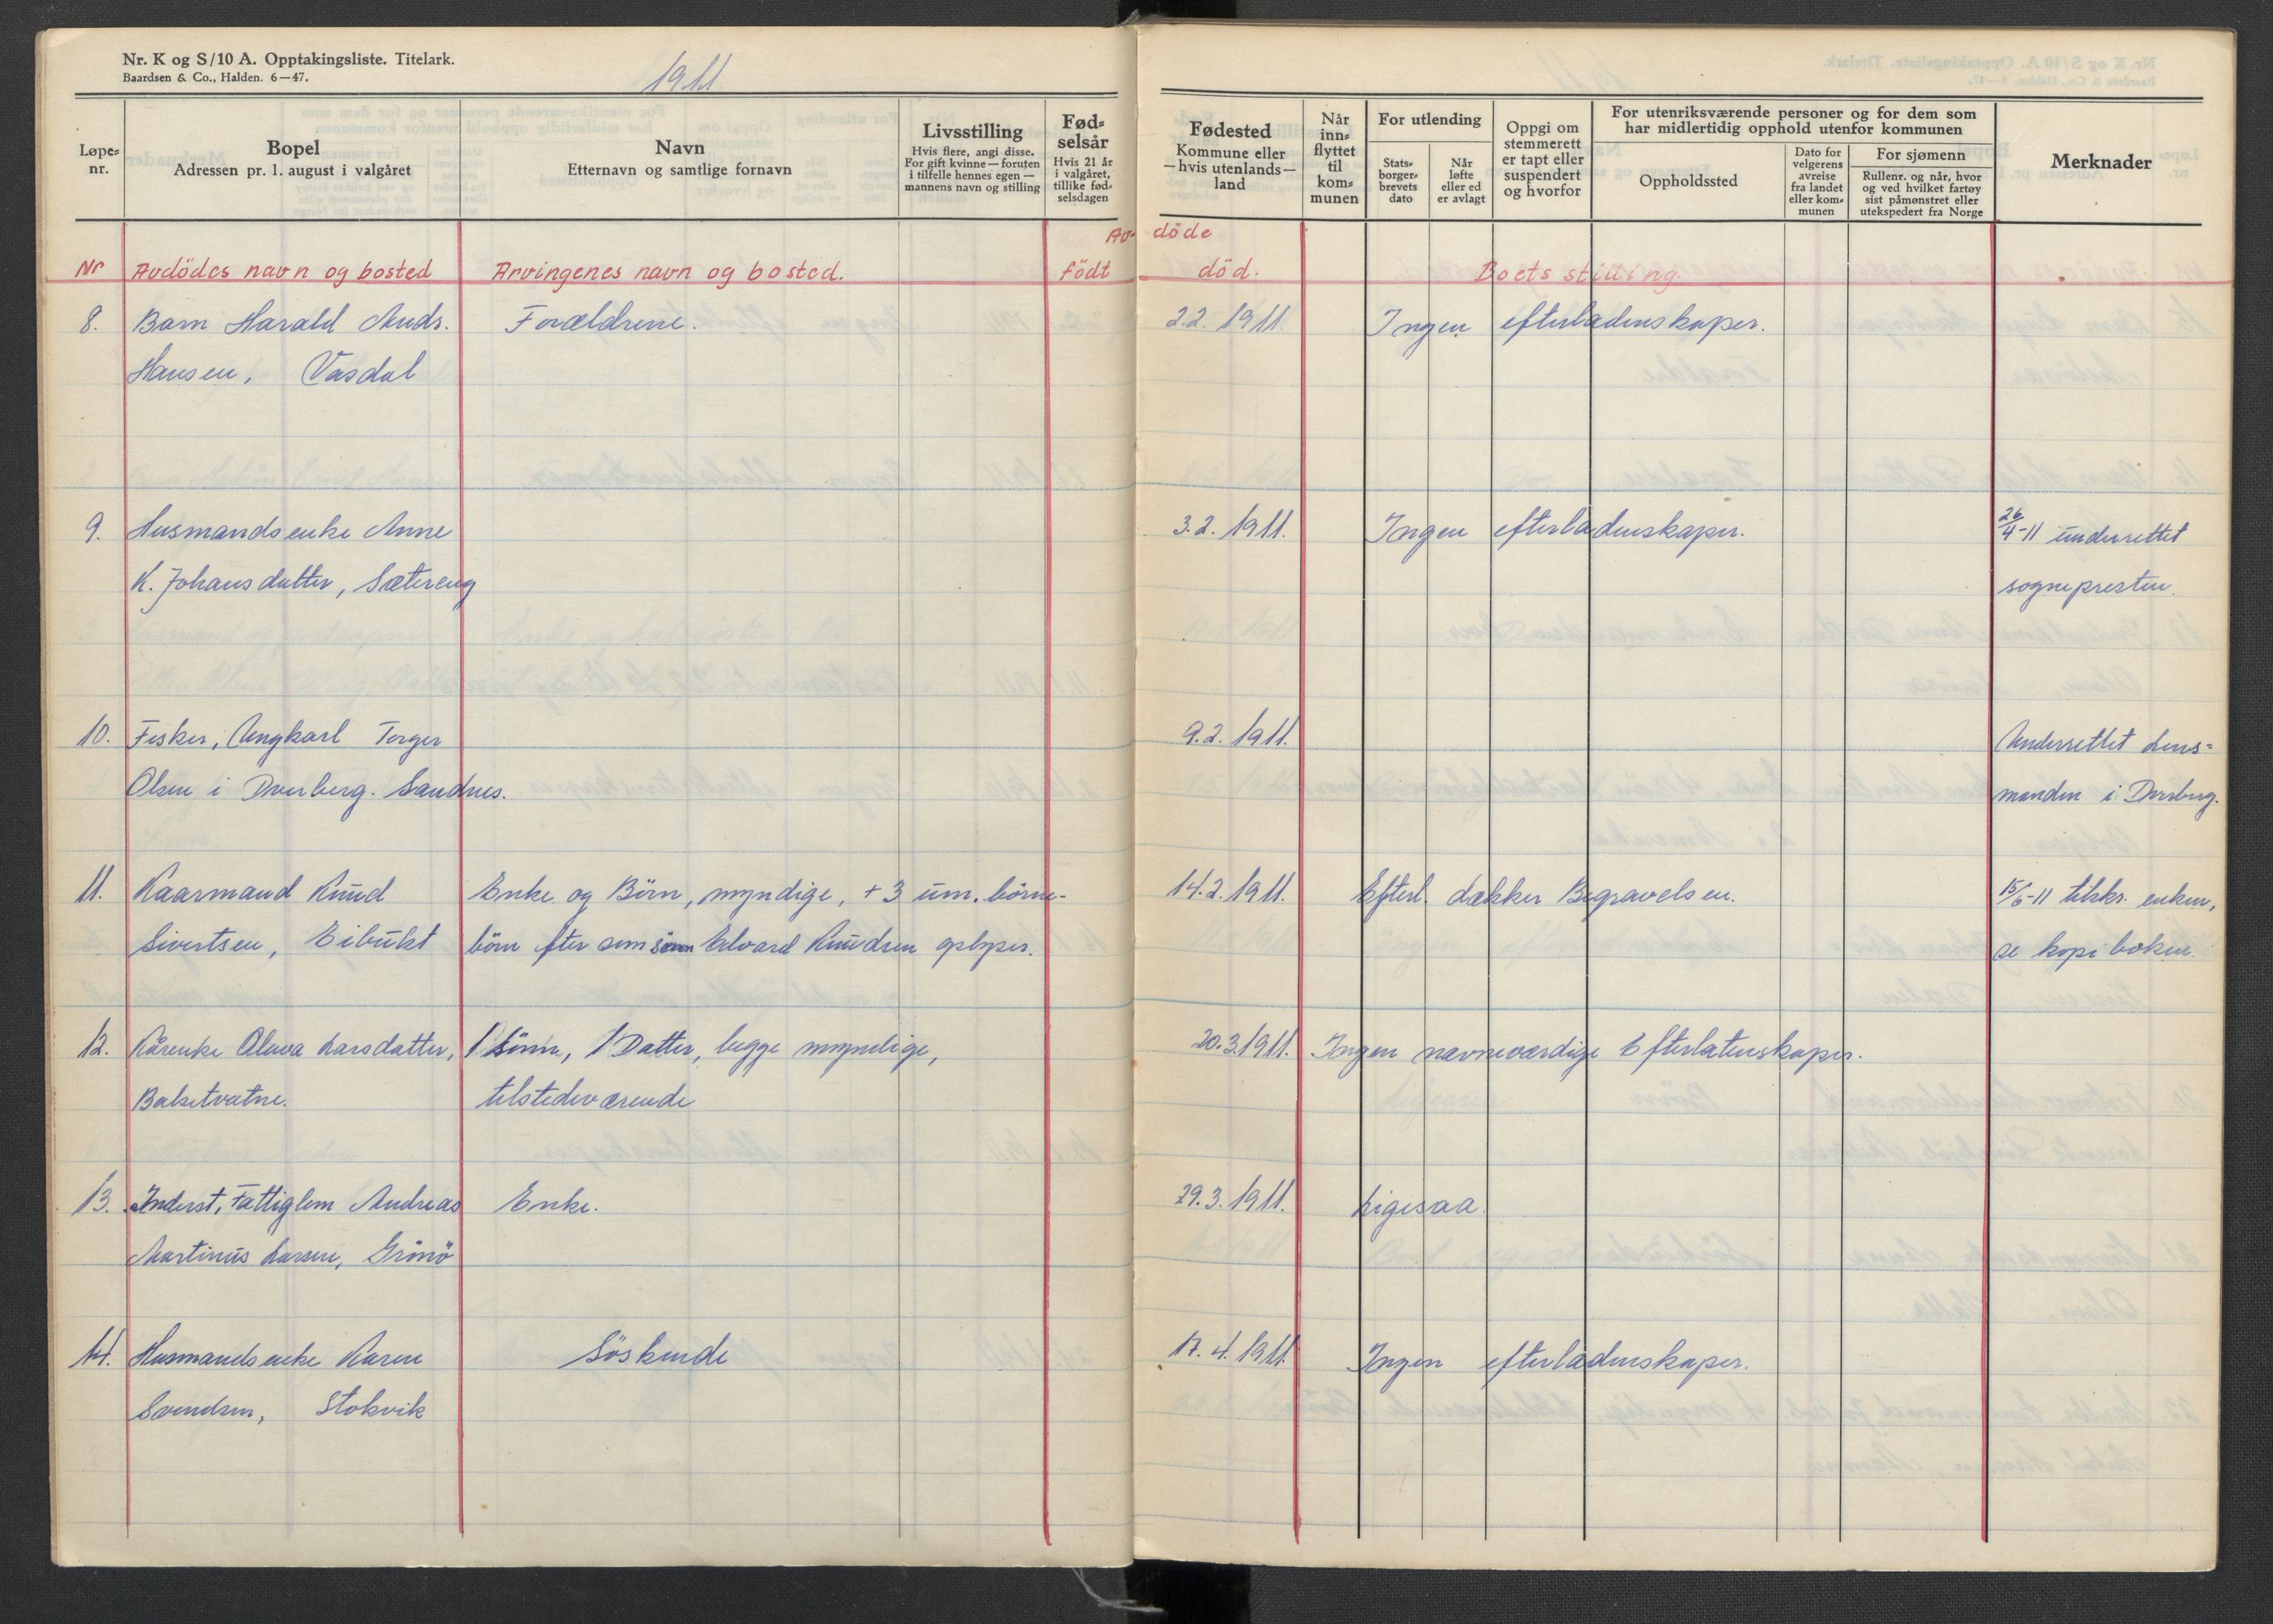 Nr. K og S/10 A. Opptakingsliste. Titelark.
Baardsen & Co., Halden. 6—47.
1911.
Løpe-
nr.
Bopel
Adressen pr. 1. august i valgåret
Navn
Etternavn og samtlige fornavn
Livsstilling
Hvis flere, angi disse.
For gift kvinne — foruten
i tilfelle hennes egen —
mannens navn og stilling
Fød-
selsår
Hvis 21 år
i valgåret,
tillike fød-
selsdagen
Fødested
Kommune eller
— hvis utenlands —
land
Når
inn-
flyttet
til
kom-
munen
For utlending
Stats-
borger-
brevets
dato
Når
løfte
eller ed
er avlagt
Oppgi om
stemmerett
er tapt eller
suspendert
og hvorfor
For utenriksværende personer og for dem som
har midlertidig opphold utenfor kommunen
Oppholdssted
Dato for
velgerens
avreise
fra landet
eller kom-
munen
For sjømenn
Rullenr. og når, hvor
og ved hvilket fartøy
sist påmønstret eller
utekspedert fra Norge
Merknader
Av- döde
Nr Avdödes navn og bosted Arvingenes navn og bosted. födt död. Boets stilling.
8. Barn Harald Andr. Forældrene. 22. 1911. Ingen efterladenskaper.
Hansen, Vasdal
9. Husmandsenke Anne 3.2. 1911. Ingen efterladenskaper. 26/4-11 underrettet
K. Johansdatter, Sætereng sognepresten.
10. Fisker, Ungkarl Torger 9.2. 1911. Underrettet Lens-
Olsen i Dverberg. Sandnes. manden i Dverberg.
11. Kaarmand Knud Enke og Börn, myndige, + 3 um. börne- 14.2. 1911. Efterl. dækker Begravelsen. 15/6-11 tilskr. enken,
Sivertsen, Eibukt börn efter som sönn Edvard Knudsen oplyser. se kopiboken.
12. Kårenke Olava Larsdatter, 1 Sönn, 1 Datter, begge myndige, 20.3.1911. Ingen navneværdige Efterlatenskaper.
Balsetvatne. tilstedeværende
13. Inderst, Fattiglem Andreas Enke. 29.3. 1911. Ligesaa.
Martinus Larsen, Grönö
14. Husmandsenke Karen Söskende 17. 4. 1911. Ingen efterladenskaper.
Svendsen, Stokvik